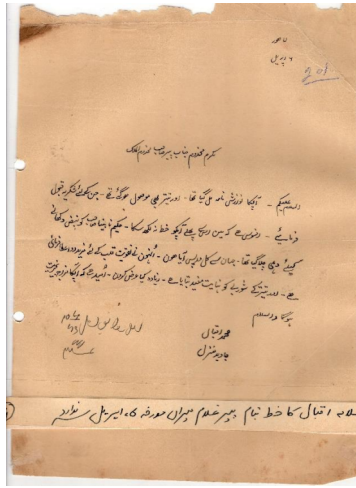 لاہور
۶ اپریل
مکرم مخدوم جناب پیر صاحب
السلام علیکم - آپکا نوازش نامہ مل گیا تھا - اور تیتر بھی موصول ہو گئے تھے - جن کیلئے شکریہ قبول
فرمائیے - افسوس ہے کہ میں اس سے پہلے آپکو خط نہ لکھ سکا - حکیم نابینا صاحب کو نبض دکھانے
کیلئے دہلی چلا گیا تھا - جہاں سے کل واپس آیا ہوں - انہوں نے تقویت قلب کے لئے
ہے - اور تیتر کے شوربے کو نہایت مفید بتایا ہے - زیادہ کیا عرض کروں - امید ہے کہ آپکا مزاج بخیریت
ہوگا والسلام
محمد اقبال
جاوید منزل
علامہ اقبال کا خط بنام پیر غلام میراں مورخہ ۶، اپریل